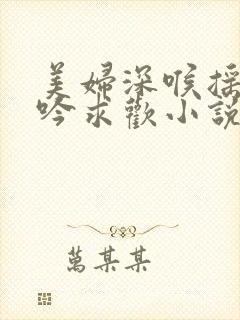 美婦深喉揺
吟求歡小説
萬某某